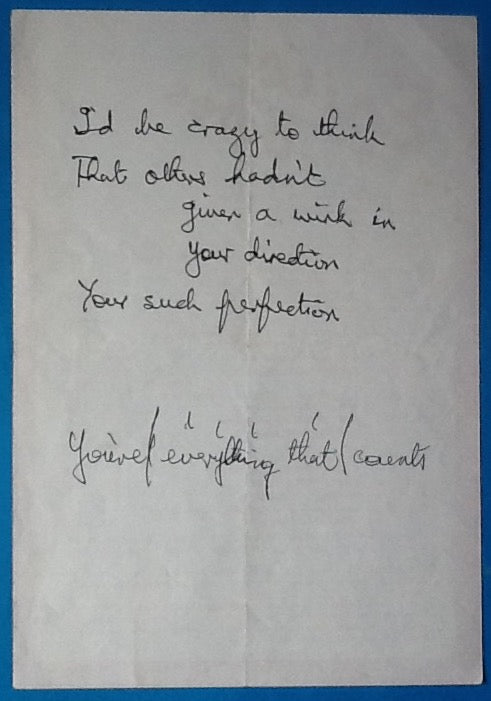 I'd be crazy to think
That others hadn't
given a wink in
your direction
Your such perfection
You've/ everything that/ counts